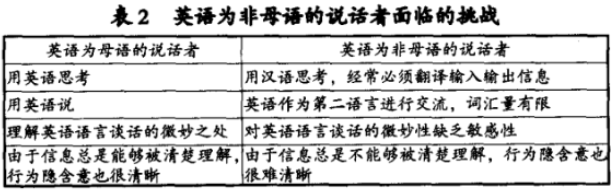 表2 英语为非母语的说话者面临的挑战
英语为母语的说话者 英语为非母语的说话者
用英语思考 用汉语思考，经常必须翻译输入输出信息
用英语说 英语作为第二语言进行交流，词汇量有限
理解英语语言谈话的微妙之处 对英语语言谈话的微妙性缺乏敏感性
由于信息总是能够被清楚理解， 由于信息总是不能够被清楚理解，行为隐含意也
行为隐含意也很清晰 很难清晰